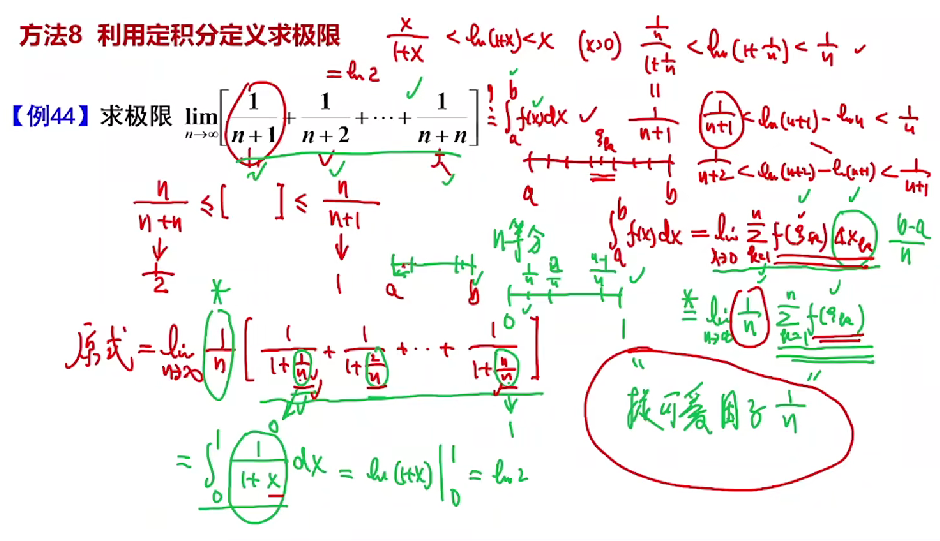 方法8 利用定积分定义求极限
x/(1+x) < ln(1+x) < x (x>0) (1/n)/(1+1/n) < ln(1+1/n) < 1/n ✓
= ln2
【例44】求极限 lim_{n→∞} [1/(n+1) + 1/(n+2) + ⋯ + 1/(n+n)] ∫_a^b f(x)dx ✓ = 1/(n+1)
1/(n+1) < ln(n+1) - ln n < 1/n
1/(n+2) < ln(n+2) - ln(n+1) < 1/(n+1)
a ξ_k b
n/(n+n) ≤ [ ] ≤ n/(n+1)
↓ ↓
1/2 1
n等分
∫_a^b f(x)dx = lim_{λ→0} ∑_{k=1}^n f(ξ_k) Δx_k (b-a)/n
a b
0 1/n 2/n (n-1)/n 1
* = lim_{n→∞} 1/n ∑_{k=1}^n f(ξ_k)
*
原式 = lim_{n→∞} 1/n [1/(1+1/n) + 1/(1+2/n) + ⋯ + 1/(1+n/n)]
0 1
提可爱因子 1/n
= ∫_0^1 1/(1+x) dx = ln(1+x) |_0^1 = ln2